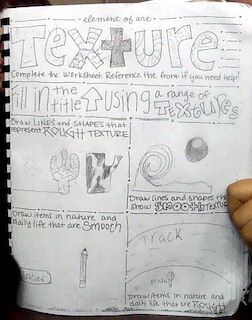 element of art:
Texture
Complete the worksheet. Reference the front if you need help!
Fill in the title ↑ using a range of TEXTURES
Draw LINES and SHAPES that represent ROUGH TEXTURE
Draw lines and shapes that show SMOOTH TEXTURE
Draw items in nature and daily life that are Smooth
Track
Draw items in nature and daily life that are ROUGH